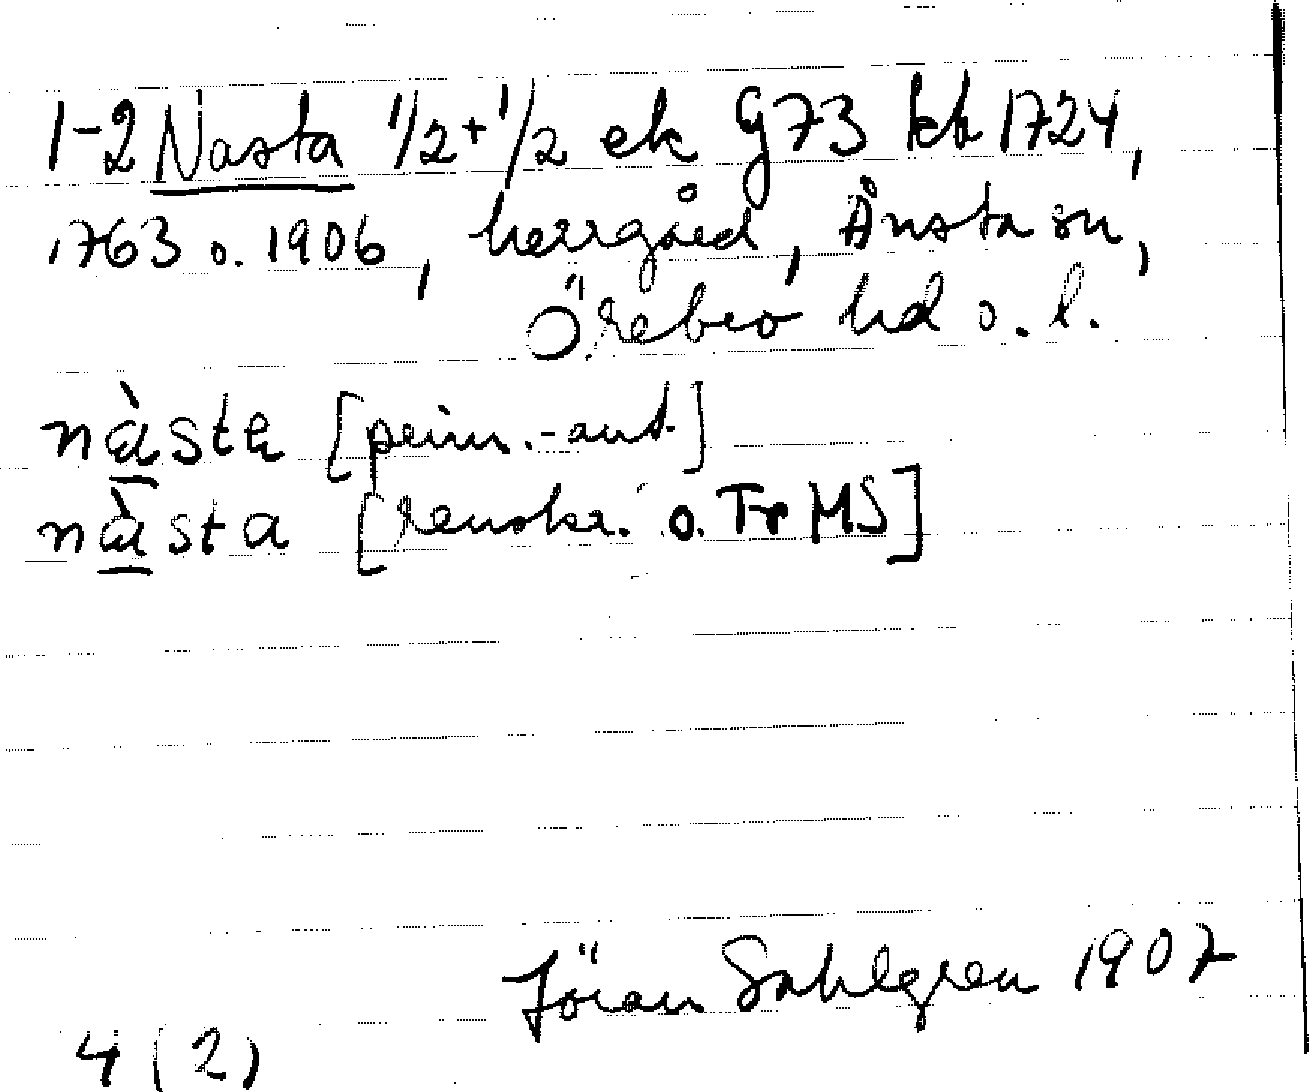 1-2 Nasta 1/2+1/2 ek G73 kb 1724,
1763 o. 1906, herrgård, Ånsta sn,
Örebro hd o. l.
nàsta [prim.-ant.]
nàsta [renskr. o. Fr MS]
Jöran Sahlgren 1907
4 (2)